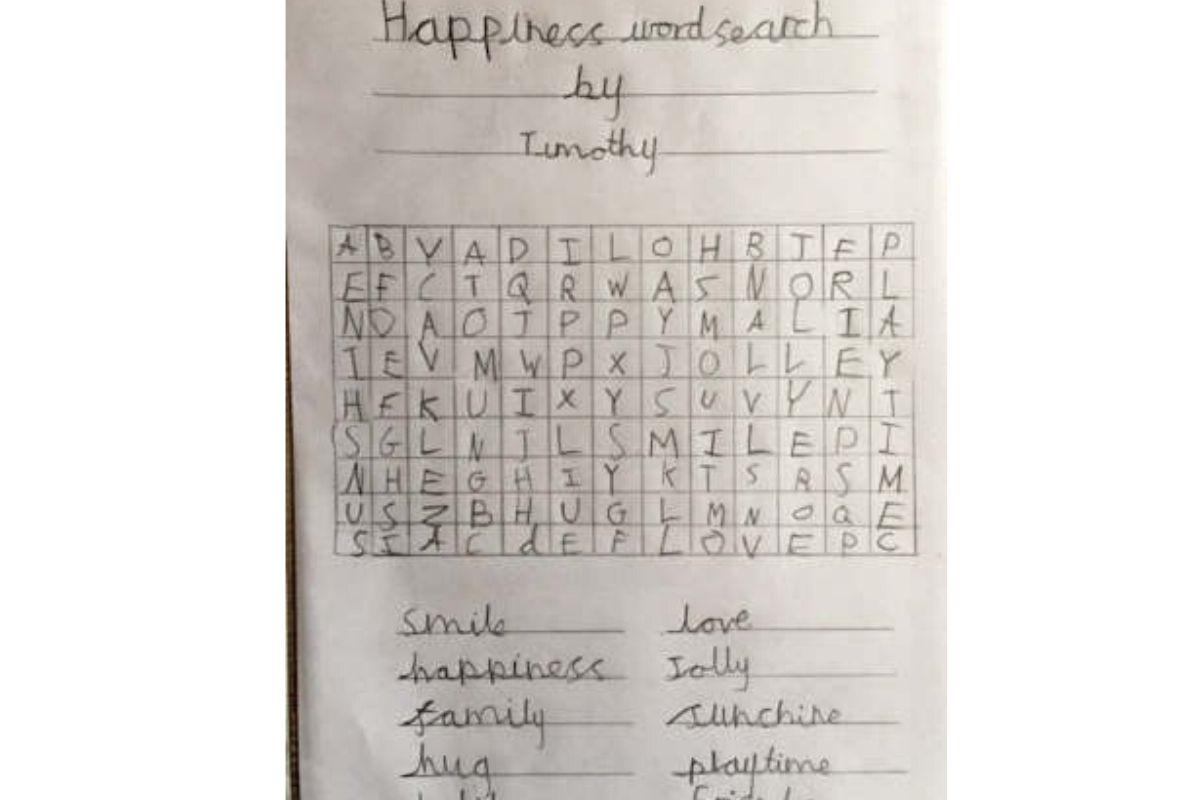 Happiness wordsearch
by
Timothy
A B V A D I L O H B J F P
E F C T Q R W A S N O R L
N D A O J P P Y M A L I A
I E V M W P X J O L L E Y
H F K U I X Y S U V Y N T
S G L N J L S M I L E D I
N H E G H I Y K T S R S M
U S Z B H U G L M N O Q E
S I A C d E F L O V E P C
smile love
happiness Jolly
family sunchine
hug playtime